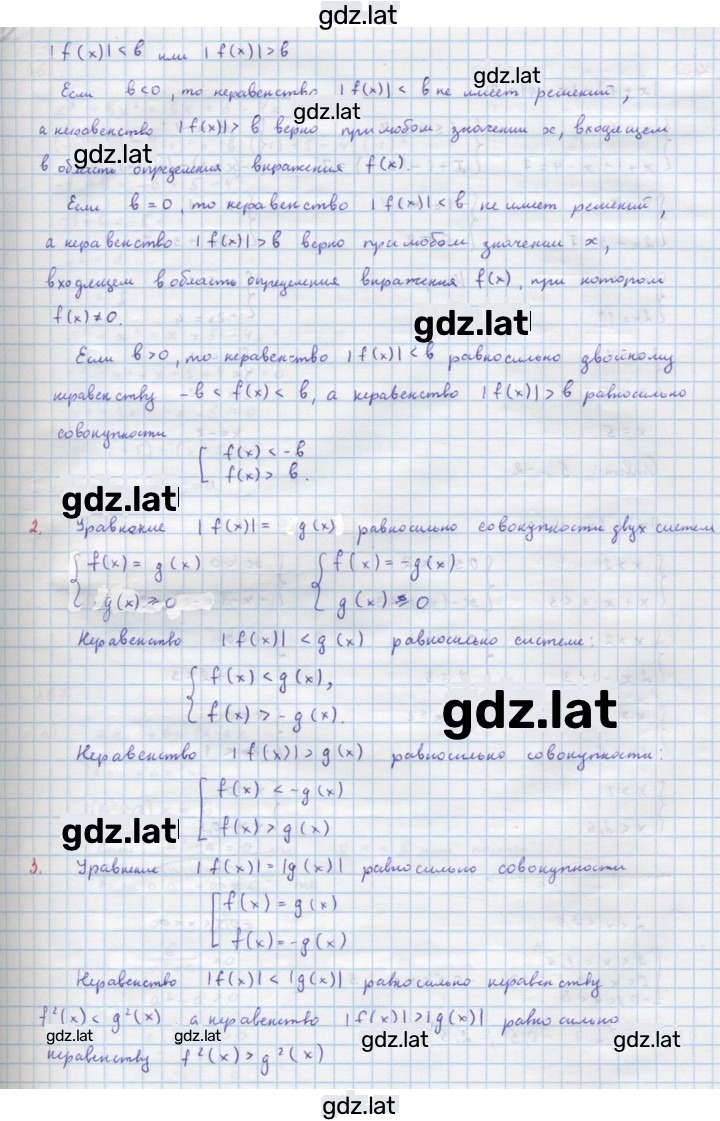 gdz.lat
|f(x)| < в или |f(x)| > в
gdz.lat
Если в<0, то неравенство |f(x)| < в не имеет решений,
gdz.lat
а неравенство |f(x)| > в верно при любом значении x, входящем
gdz.lat
в область определения выражения f(x).
Если в = 0, то неравенство |f(x)| < в не имеет решений,
а неравенство |f(x)| > в верно при любом значении x,
входящем в область определения выражения f(x), при котором
f(x) ≠ 0.
gdz.lat
Если в > 0, то неравенство |f(x)| < в равносильно двойному
неравенству -в < f(x) < в, а неравенство |f(x)| > в равносильно
совокупности
[ f(x) < -в
f(x) > в.
gdz.lat
2. Уравнение |f(x)| = g(x) равносильно совокупности двух систем
{ f(x) = g(x) { f(x) = -g(x)
g(x) ≥ 0 g(x) ≥ 0
Неравенство |f(x)| < g(x) равносильно системе:
{ f(x) < g(x),
f(x) > -g(x).
gdz.lat
Неравенство |f(x)| > g(x) равносильно совокупности:
[ f(x) < -g(x)
f(x) > g(x)
gdz.lat
3. Уравнение |f(x)| = |g(x)| равносильно совокупности
[ f(x) = g(x)
f(x) = -g(x)
Неравенство |f(x)| < |g(x)| равносильно неравенству
f²(x) < g²(x) а неравенство |f(x)| > |g(x)| равносильно
gdz.lat gdz.lat gdz.lat gdz.lat
неравенству f²(x) > g²(x)
gdz.lat